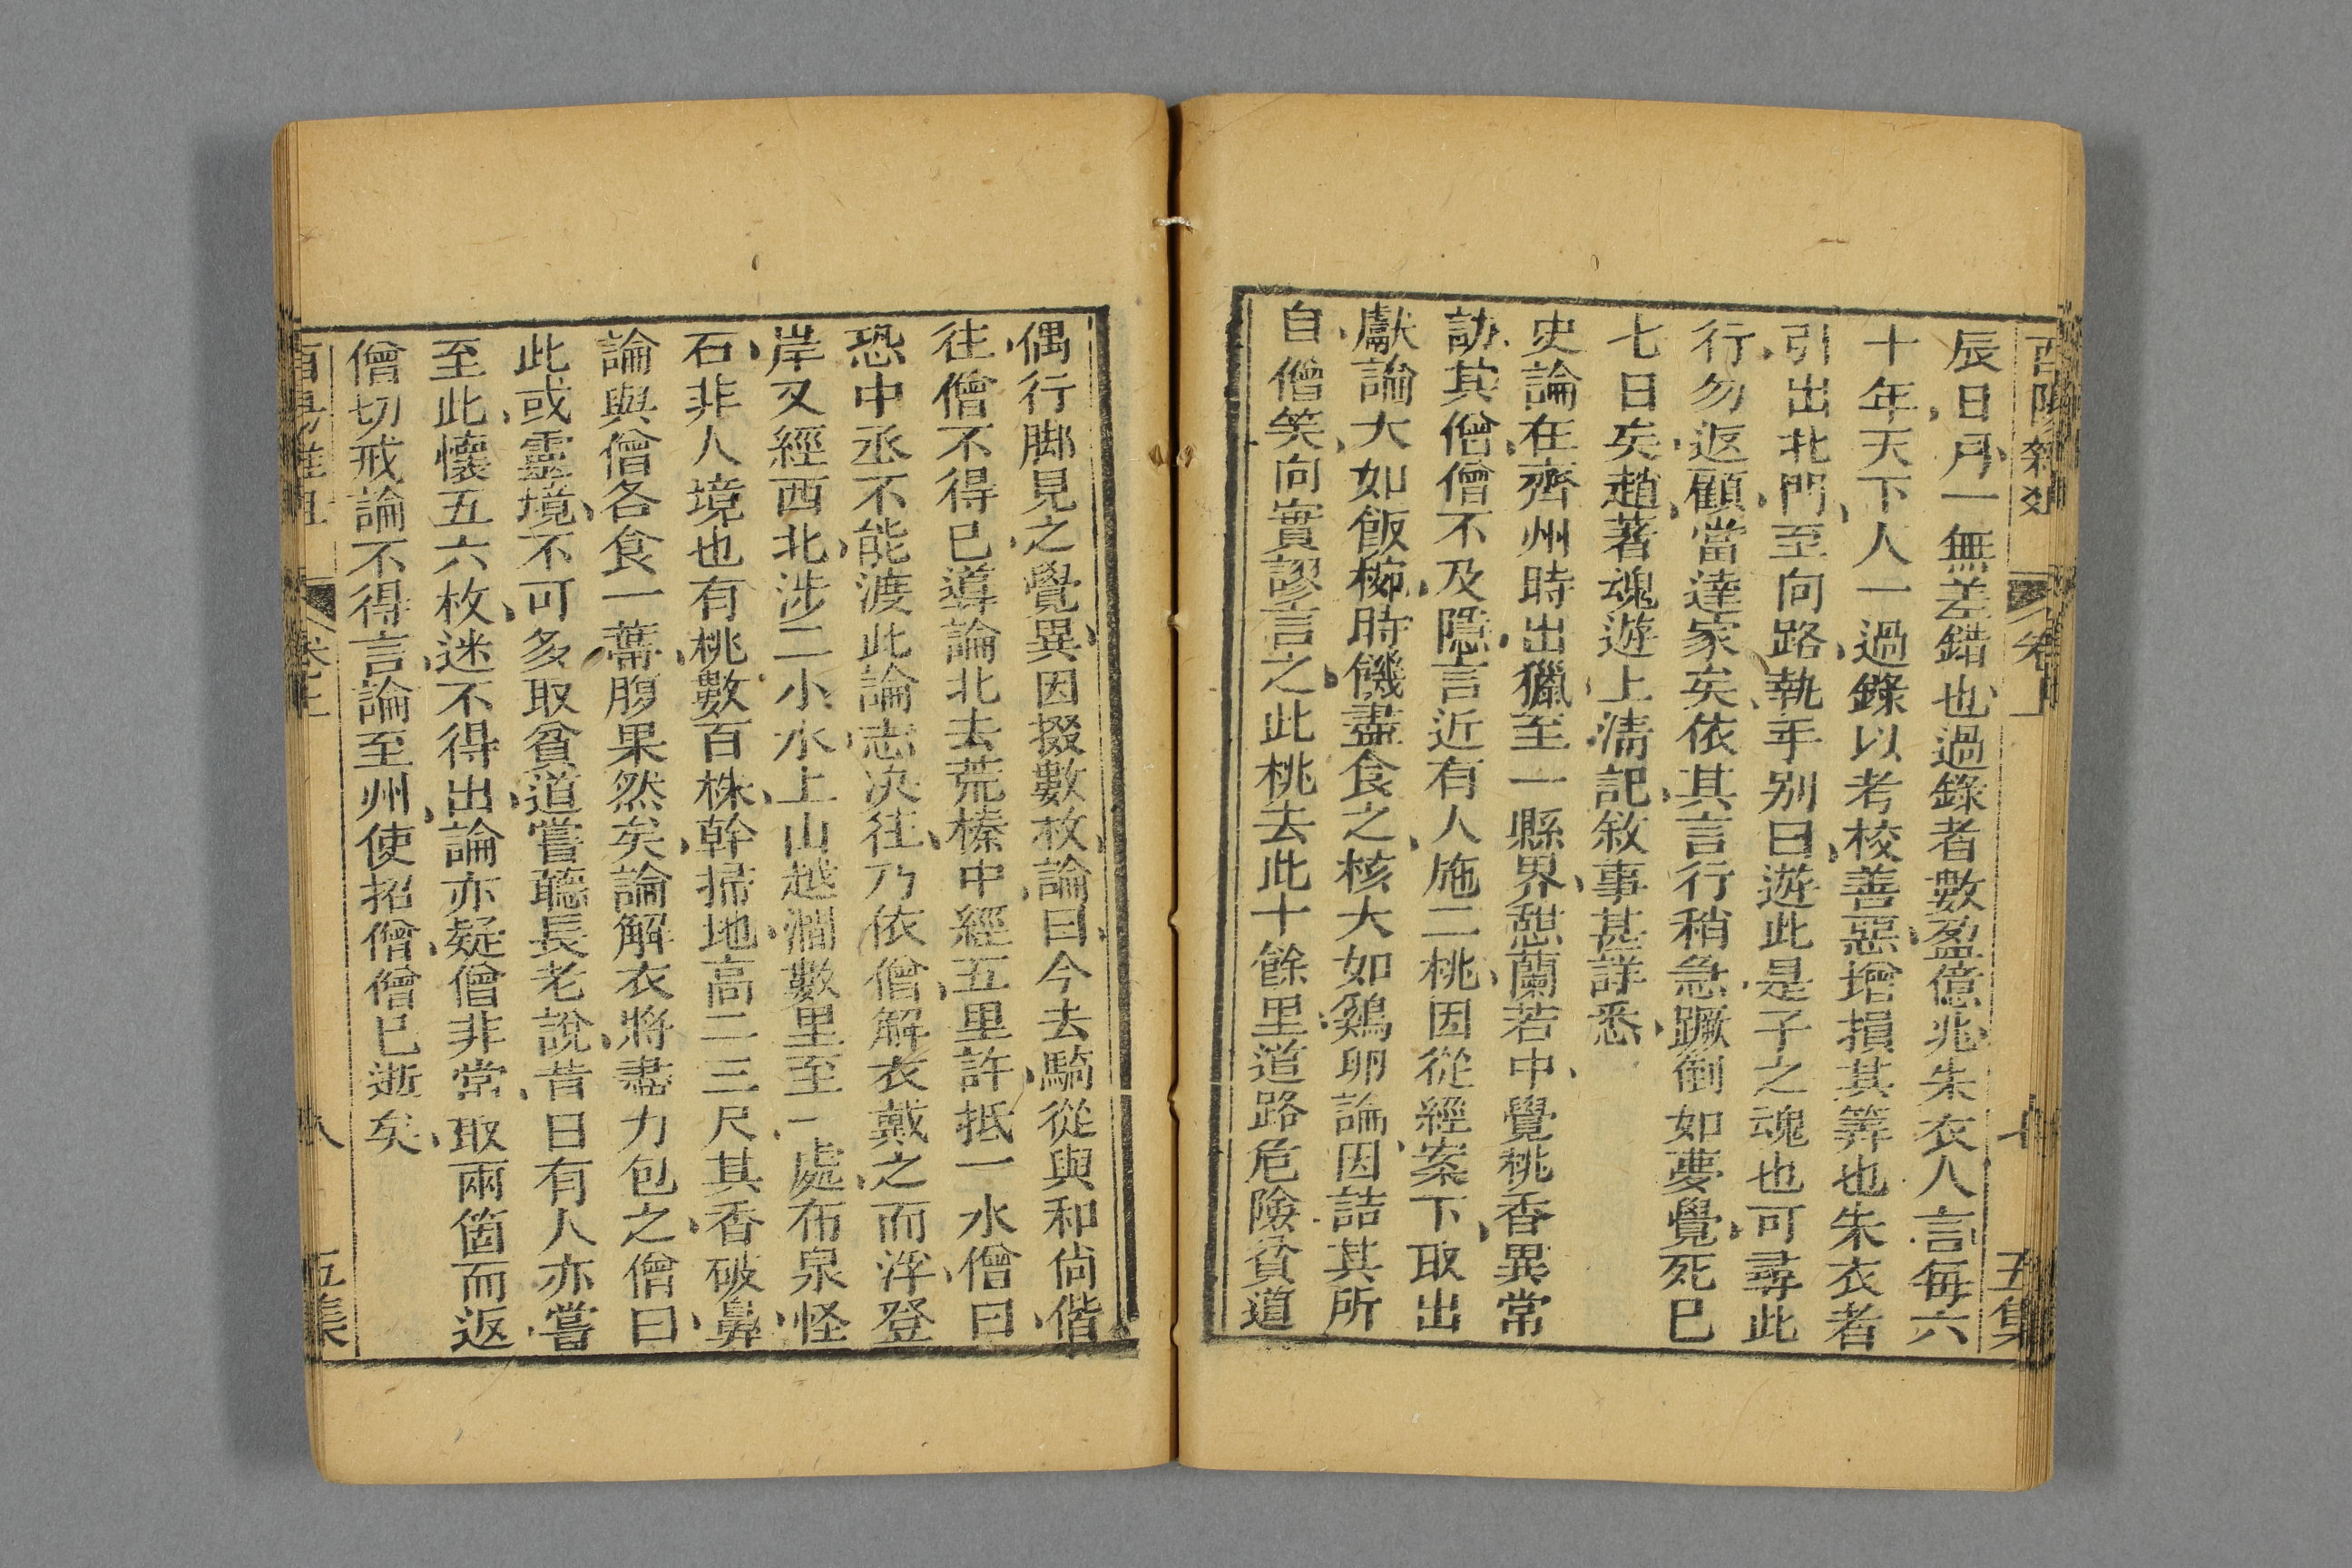 酉陽雜俎 卷上 七 五集
辰日月一無差錯也過錄者數盈億兆朱衣人言每六
十年天下人一過錄以考校善惡增損其筭也朱衣者
引出北門至向路執手别曰遊此是子之魂也可尋此
行勿返顧當達家矣依其言行稍急蹶倒如夢覺死已
七日矣趙著魂遊上清記敘事甚詳悉
史論在齊州時出獵至一縣界憇蘭若中覺桃香異常
訪其僧僧不及隱言近有人施二桃因從經案下取出
獻論大如飯椀時饑盡食之核大如鷄卵論因詰其所
自僧笑向實謬言之此桃去此十餘里道路危險貧道
偶行脚見之覺異因掇數枚論曰今去騎從與和尙偕
往僧不得已導論北去荒榛中經五里許抵一水僧曰
恐中丞不能渡此論志决往乃依僧解衣戴之而浮登
岸又經西北涉二小水上山越澗數里至一處布泉怪
石非人境也有桃數百株幹掃地高二三尺其香破鼻
論與僧各食一蔕腹果然矣論解衣將盡力包之僧曰
此或靈境不可多取貧道嘗聽長老說昔日有人亦嘗
至此懷五六枚迷不得出論亦疑僧非常取兩箇而返
僧切戒論不得言論至州使招僧僧已逝矣
酉昜雜俎 卷上 八 五集